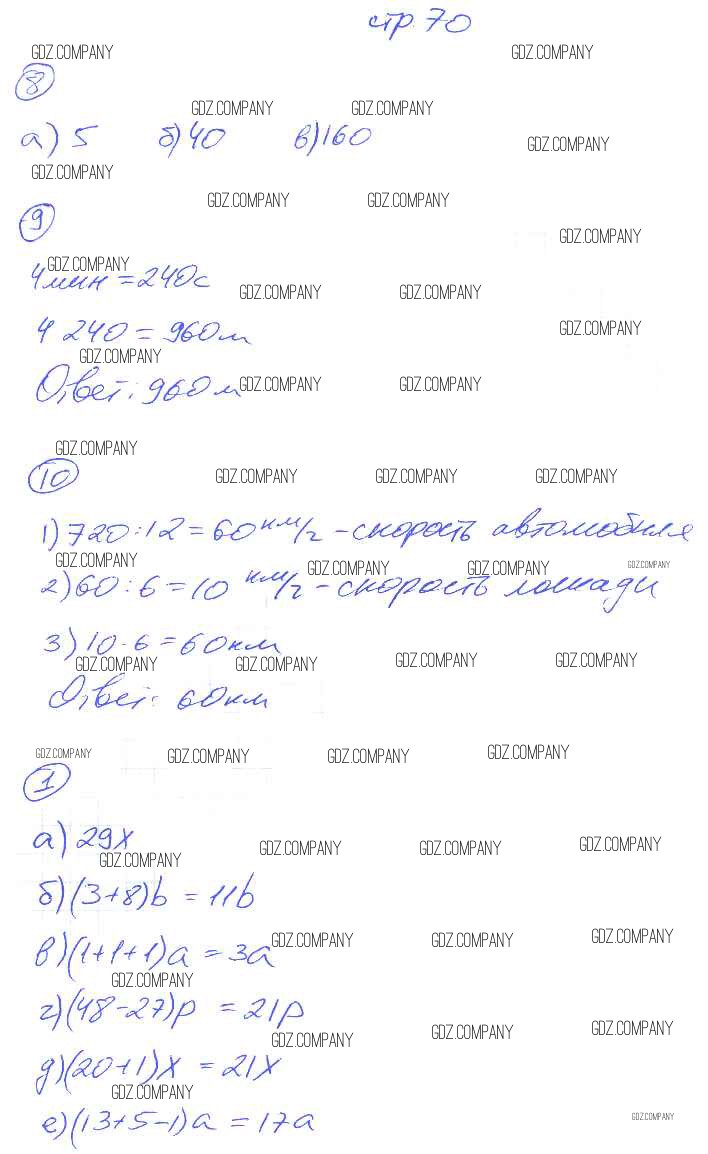 стр. 70
GDZ.COMPANY GDZ.COMPANY
8
GDZ.COMPANY GDZ.COMPANY
а) 5 б) 40 в) 160
GDZ.COMPANY
GDZ.COMPANY
GDZ.COMPANY GDZ.COMPANY
9
GDZ.COMPANY
GDZ.COMPANY
4 мин = 240 с
GDZ.COMPANY GDZ.COMPANY
4 240 = 960 м
GDZ.COMPANY
GDZ.COMPANY
Ответ: 960 м
GDZ.COMPANY GDZ.COMPANY
GDZ.COMPANY
10
GDZ.COMPANY GDZ.COMPANY GDZ.COMPANY
1) 720 : 12 = 60 км/ч - скорость автомобиля
GDZ.COMPANY GDZ.COMPANY GDZ.COMPANY GDZ.COMPANY
2) 60 : 6 = 10 км/ч - скорость лошади
3) 10 · 6 = 60 км
GDZ.COMPANY GDZ.COMPANY GDZ.COMPANY GDZ.COMPANY
Ответ: 60 км
GDZ.COMPANY GDZ.COMPANY GDZ.COMPANY GDZ.COMPANY
1
а) 29x
GDZ.COMPANY GDZ.COMPANY GDZ.COMPANY GDZ.COMPANY
б) (3+8)b = 11b
в) (1+1+1)a = 3a
GDZ.COMPANY GDZ.COMPANY GDZ.COMPANY
GDZ.COMPANY
г) (48-27)p = 21p
GDZ.COMPANY GDZ.COMPANY GDZ.COMPANY
д) (20+1)x = 21x
GDZ.COMPANY
е) (13+5-1)a = 17a
GDZ.COMPANY